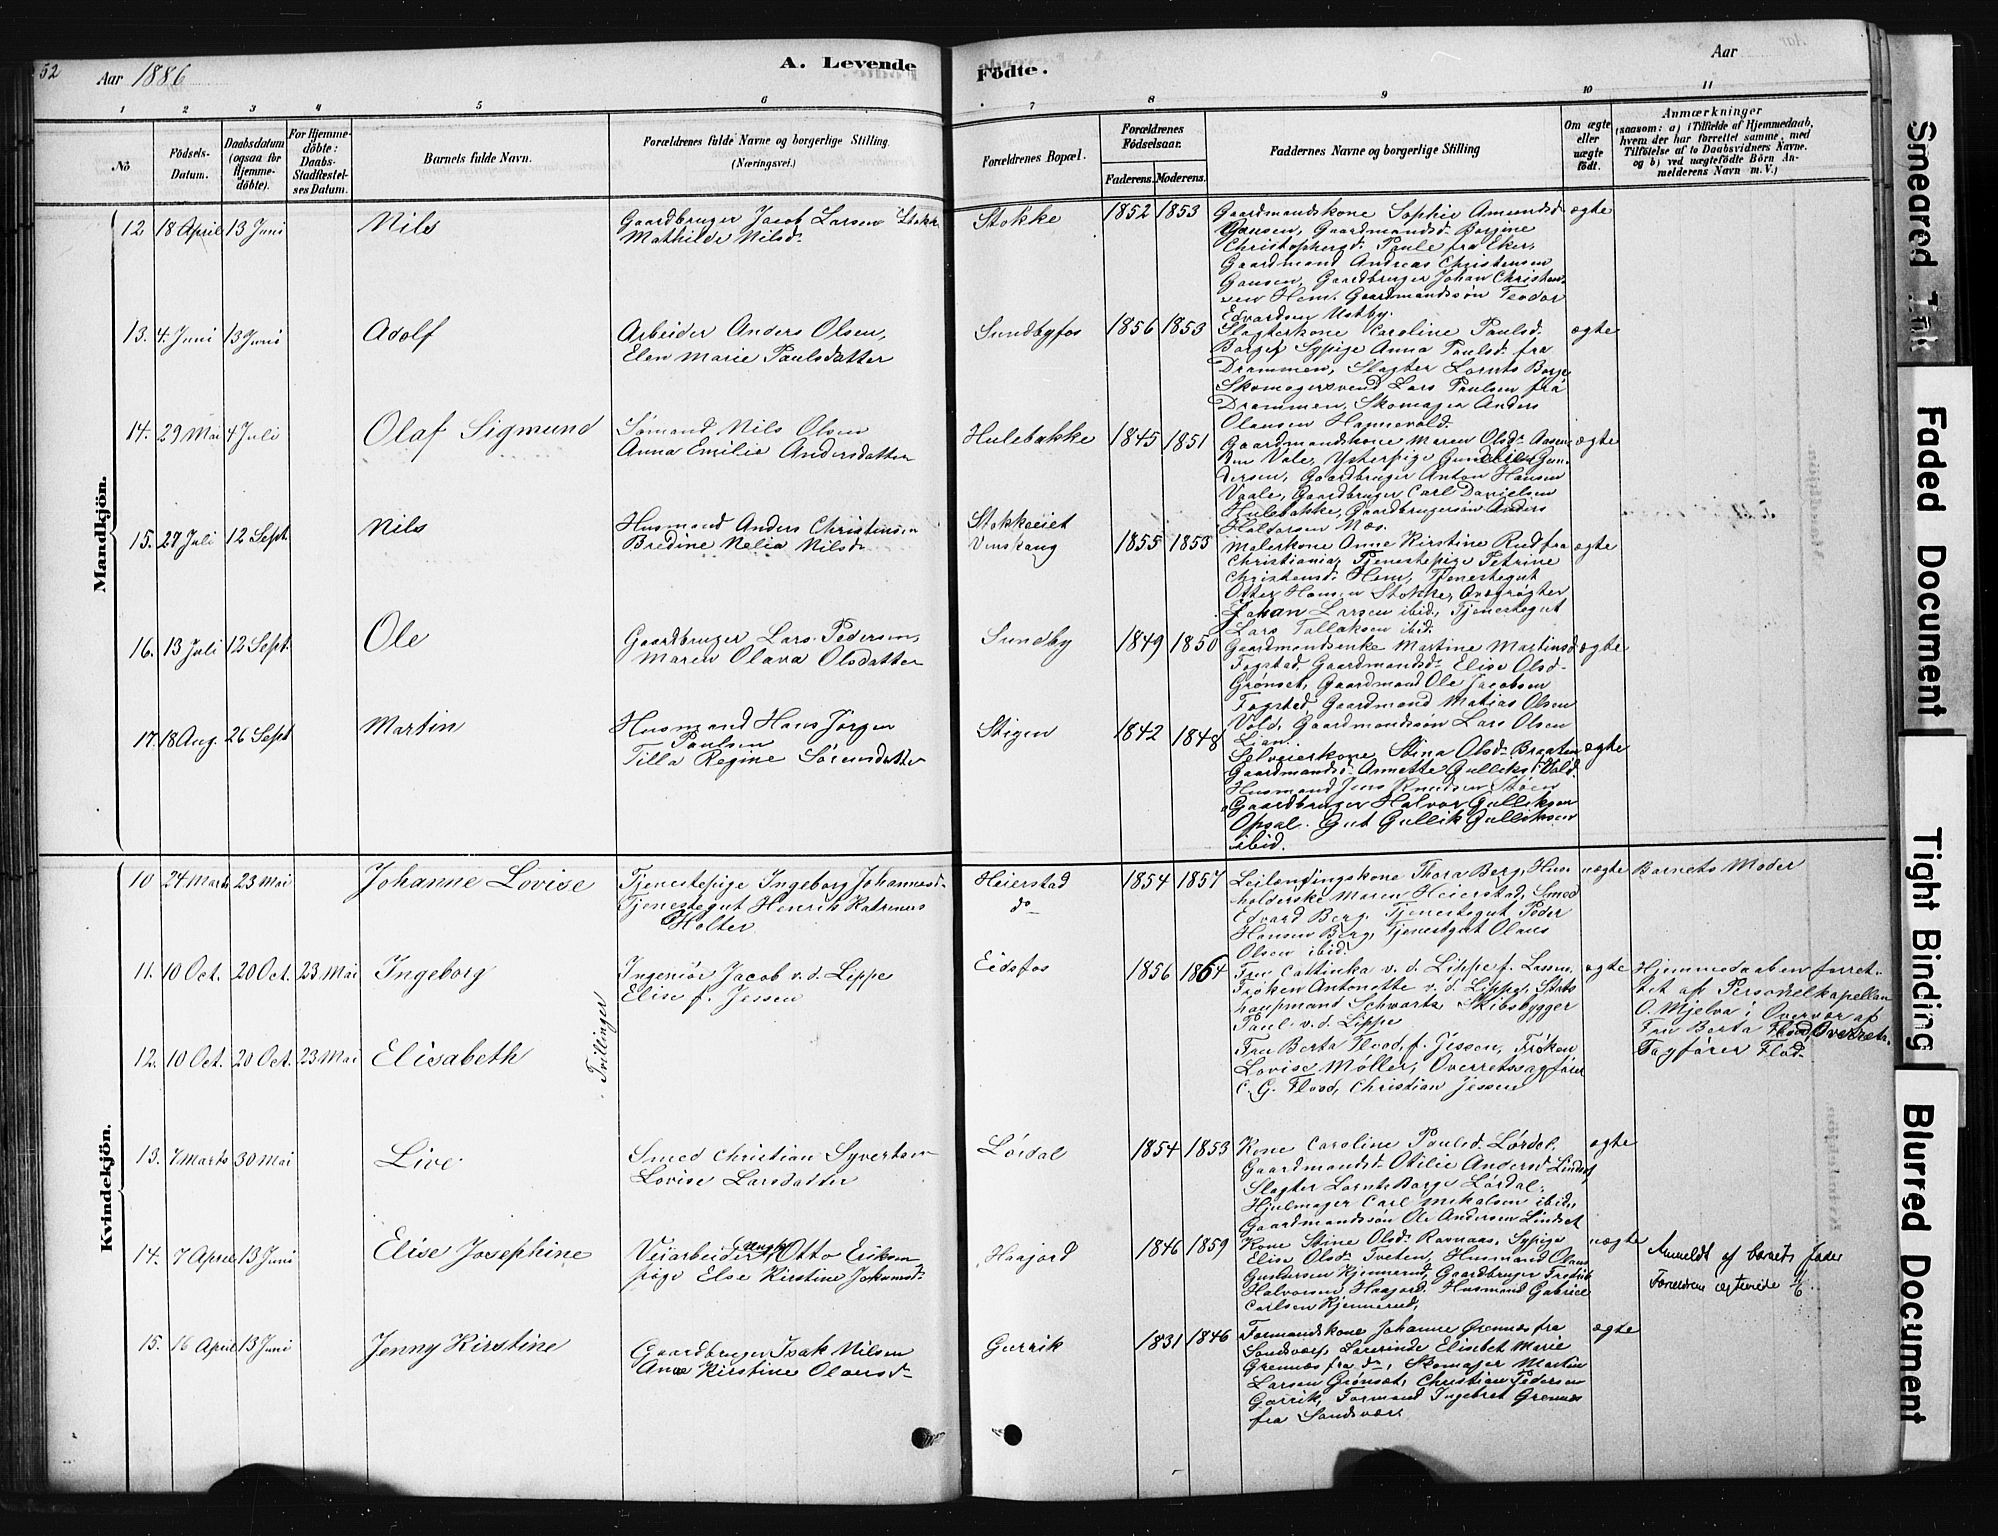 52
Aar 1886
A. Levende
Födte.
Aar
1 2 3 4 5 6 7 8 9 10 11
No
Födsels-Datum.
Daabsdatum (ogsaa for Hjemme-döbte).
For Hjemme-döbte: Daabs-Stadfæstel-ses Datum.
Barnets fulde Navn.
Forældrenes fulde Navne og borgerlige Stilling. (Næringsvei.)
Forældrenes Bopæl.
Forældrenes Födselsaar.
Faderens. Moderens.
Faddernes Navne og borgerlige Stilling
Om ægte eller uægte födt.
Anmærkninger
(saasom: a) i Tilfælde af Hjemmedaab, hvem der har forrettet samme, med Tilföielse af to Daabsvidners Navne. og b) ved uægtefödte Börn An-melderens Navn m. V.)
Mandkjön.
12 18 April 13 Juni Nils
Gaardbruger Jacob Larsen Stokke
Mathilde Nilsd.
Stokke 1852 1853
Gaardmandskone Sophie Amundsd
Gausen, Gaardmandsd. Borgine
Christophersd. Paule fra Eker,
Gaardmand Andreas Christensen
Gausen, Gaardbruger Johan Christen-
sen Hem. Gaardmandssøn Teodor
Edvardsen Ustby.
ægte
13. 4. Juni 13 Juni Adolf
Arbeider Anders Olsen,
Elen Marie Paulsdatter
Sundbyfos 1856 1853
Slagterkone Caroline Paulsd.
Borge, Sypige Anna Paulsd. fra
Drammen, Slagter Lornts Borge
Skomagersvend Lars Paulsen fra
Drammen, Skomager Anders
Olausen Hamsevold.
ægte
14. 29 Mai 4 Juli Olaf Sigmund
Sømand Nils Olsen
Anna Emilie Andersdatter
Hulebakke 1845 1851
Gaardmandskone Maren Olsd. Aasen-
den Vale, Ysterpige Gun
dersen, Gaardbruger Anton Hansen
Vaale, Gaardbruger Carl Danielsen
Hulebakke, Gaardbrugersøn Anders
Haldorsen Næs.
ægte
15. 27 Juli 12 Sept. Nils
Husmand Anders Christensen
Bredine Nelia Nilsd.
Stokkeeiet
1855 1853
Malerkone Anne Kirstine Rud fra
Christiania, Tjenestepige Petrine
Christensd. Hem, Tjenestegut
Otter Hansen Stokke,
Johan Larsen ibid, Tjenestegut
Lars Tallaksen ibid.
ægte
16. 13 Juli 12 Sept. Ole
Gaardbruger Lars Pedersen,
Maren Olava Olsdatter
Sundby 1849 1850
Gaardmandsenke Martine Martinsd
Fogstad, Gaardmandsd. Elise Olsd.
Grønset, Gaardmand Ole Jacobsen
Fogstad, Gaardmand Matias Olsen
Vold, Gaardmandssøn Lars Olsen
Lian.
ægte
17. 18 Aug. 26 Sept Martin
Husmand Hans Jørgen
Paulsen
Tilla Regine Sørensdatter
Stigen 1842 1848
Selveierkone Stina Olsd. Braaten
Gaardmandsd. Annette Gulliksd. Vold
Husmand Jens Knudsen Støen
Gaardbruger Halvor Gulliksen
Opsal. Gut Gullik Gulliksen
ibid.
ægte
Kvindekjön.
10 24 Marts 23 Mai Johanne Lovise
Tjenestepige Ingeborg Johannesd.
Tjenestegut Henrik
Holter
Heierstad
do
1854 1857
Leilændingskone Thora Berg, Hus-
holderske Maren Heierstad, Smed
Edvard Berg, Tjenestegut Peder
Hansen Berg, Tjenestegut Olaus
Olsen ibid.
uægte
Barnets Moder
11. 10 Oct. 20 Oct. 23 Mai Ingeborg
Tvillinger
Ingeniør Jacob v. d. Lippe
Elise f. Jessen
Eidsfos 1856 1864
Fru Cattinka v. d. Lippe f. Lassen,
Frøken Antonette v. d. Lippe, Stats
haupmand Schwartz, Skibsbygger
Paul v. d. Lippe
ægte
Hjemmedaaben forret-
tet af Personelkapellan
O. Mjelva i Overvær af
Fru Berta Flod, Overrets.
Sagfører Flod.
12. 10 Oct. 20 Oct. 23 Mai Elisabeth
Fru Berta Flood, f. Jessen, Frøken
Lovise Møller, Overretssagfører
C. G. Flood, Christian Jessen
13. 7 Marts 30 Mai Live
Smed Christian Syvertsen
Lovise Larsdatter
Lørdal 1854 1853
Kone Caroline Paulsd. Lørdal,
Gaardmandsd. Otilie Andersd. Lindset
Slagter Lornts Borge Lørdal,
Hjulmager Carl Mikalsen ibid,
Gaardmandssøn Ole Andersen Lindset
ægte
14. 7 April 13 Juni Elise Josephine
Veiarbeider, Ungk. Otto Eriksen
pige Else Kirstine Johannesd.
Haajord 1846 1859
Kone Stine Olsd. Ravnaas, Sypige
Elise Olsd. Tveten, Husmand Olaus
Gundersen Kjennerud, Gaardbruger Fredrik
Halvorsen Haajord. Husmand Gabriel
Carlsen Kjennerud,
uægte
Anmeldt af barnets fader
Forældrene ægteviede
15. 16 April 13 Juni Jenny Kirstine
Gaardbruger Isak Nilsen
Anne Kirstine Olausd.
Gurrik 1831 1846
Formandskone Johanne Grennæs fra
Sandsvær, Lærerinde Elisbet Marie
Grennæs fra do, Skomager Martin
Larsen Grønset, Christian Pedersen
Gurrik, Formand Ingebret Grennæs
fra Sandsvær.
ægte
Smeared Ink
Faded Document
Tight Binding
Blurred Document